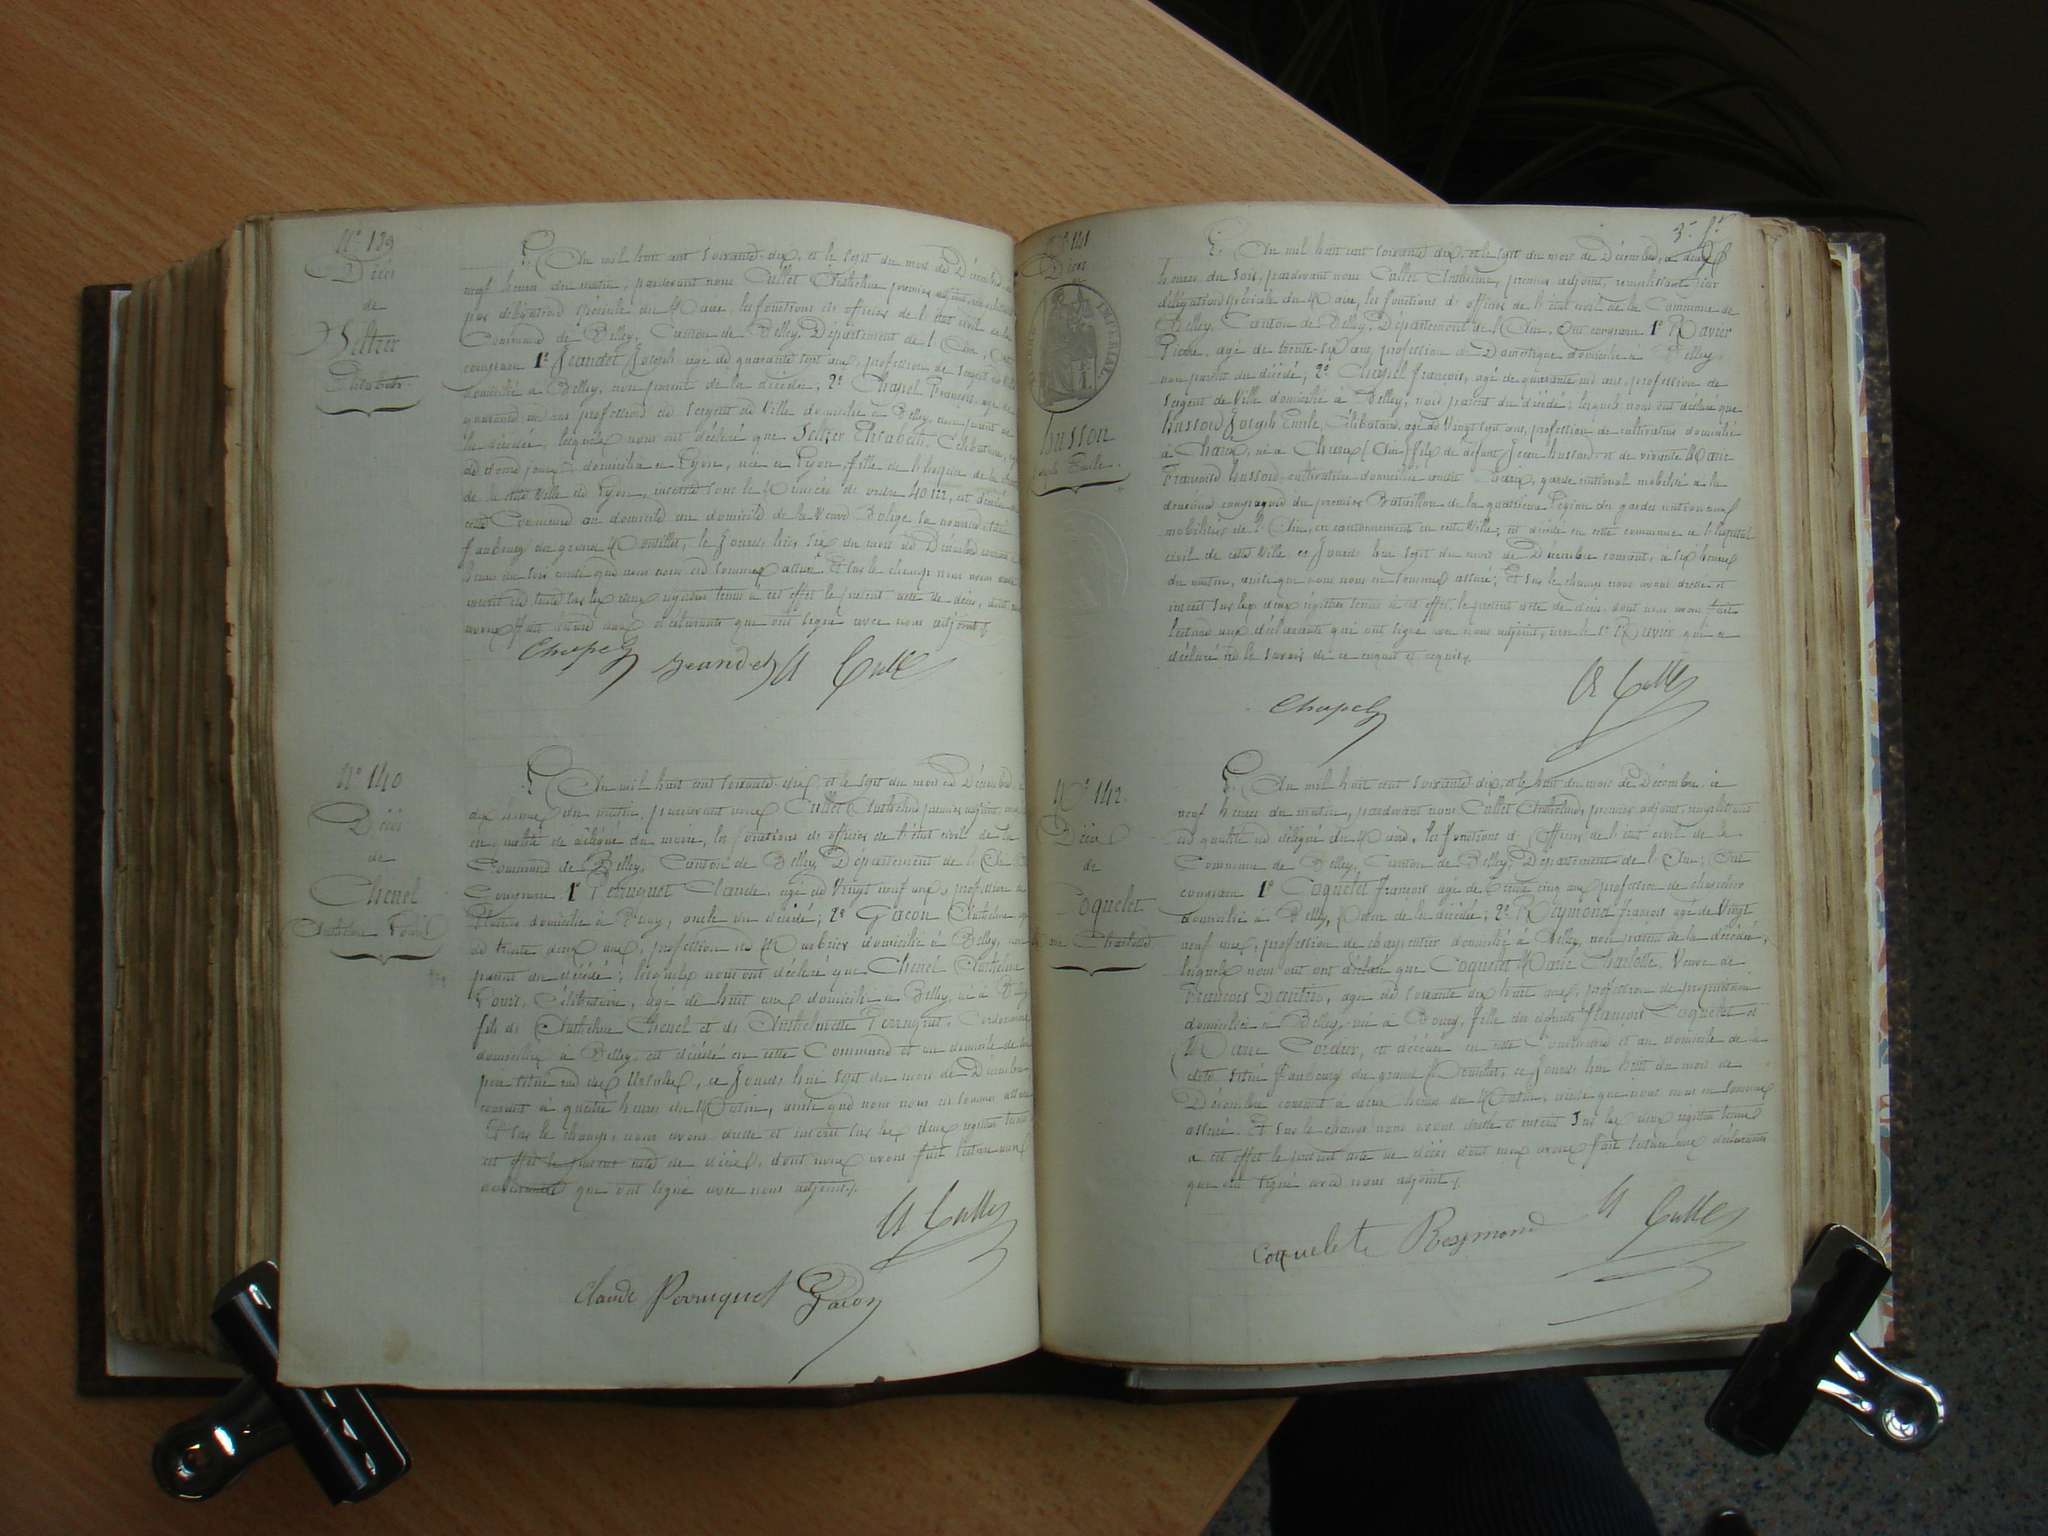 N° 139
Décès
de
Seltzer
Elisabeth
L'an mil huit cent soixante-dix, et le sept du mois de Décembre à
neuf heures du matin, pardevant nous Cullet Anthelme premier adjoint
par délégation spéciale du Maire, les fonctions d'officier de l'état civil de la
Commune de Belley, Canton de Belley, Département de l'Ain, Ont
comparu 1° Jeandet Joseph agé de quarante sept ans, profession de Sergent de Ville
domicilié à Belley, non parent de la décédée, 2° Chapel François, agé de
quarante ans profession de Sergent de Ville domicilié à Belley, non parent de
la décédée, lesquels nous ont déclaré que Seltzer Elisabeth, Célibataire, agée
de douze jours, domiciliée à Lyon, née à Lyon, fille de l'hospice de la charité
de la dite Ville de Lyon, inscrite sous le Numéro d'ordre 40122, est décédée en
cette Commune au domicile au domicile de la Veuve
faubourg du grand Moulillet, le Jourd'hier, six du mois de Décembre courant à
heures du soir ainsi que nous nous en sommes assuré. Et sur le champ nous avons
inscrit de suite sur les deux registres tenus à cet effet le présent acte de décès, dont nous
avons fait lecture aux déclarants qui ont signé avec nous adjoint.
Chapel Jeandet A Cullet
N° 140
Décès
de
Chenel
Anthelme Louis
L'an mil huit cent soixante-dix, et le sept du mois de Décembre, à
dix heures du matin, pardevant nous Cullet Anthelme, premier adjoint
en qualité de délégué du maire, les fonctions d'officier de l'état civil de la
Commune de Belley, Canton de Belley, Département de l'Ain
Comparu 1° Perruquet Claude, agé de Vingt neuf ans, profession de
Platrier domicilié à Belley, oncle du décédé; 2° Gacon Anthelme agé
de trente deux ans, profession de Marbrier domicilié à Belley, non
parent du décédé; lesquels nous ont déclaré que Chenel Anthelme
Louis, Célibataire, agé de huit ans domicilié à Belley, né à Belley
fils de Anthelme Chenel et de Anthelmette Perruquet, Cordonniers
domiciliés à Belley, est décédé en cette Commune et au domicile de son
père situé rue des Ursules, ce Jourd'hui sept du mois de Décembre
courant à quatre heures du Matin, ainsi que nous nous en sommes assuré
Et sur le champ nous avons dressé et inscrit sur les deux registres tenus
à cet effet le présent acte de décès, dont nous avons fait lecture aux
déclarants qui ont signé avec nous adjoint.
A Cullet
Claude Perruquet Gacon
3° f.t
N° 141
Décès
IMPERIAL
husson
Joseph Emile
L'an mil huit cent soixante dix, et le sept du mois de Décembre, à deux
heures du soir, pardevant nous Cullet Anthelme, premier adjoint, remplissant par
délégation spéciale du Maire, les fonctions d'officier de l'état civil de la Commune de
Belley, Canton de Belley, Département de l'Ain, Ont comparu 1° Ravier
Pierre, agé de trente-six ans, profession de Domestique domicilié à Belley,
non parent du décédé; 2° Chapel françois, agé de quarante ans, profession de
Sergent de Ville domicilié à Belley, non parent du décédé; lesquels nous ont déclaré que
husson Joseph Emile, Célibataire, agé de Vingt sept ans, profession de cultivateur domicilié
à Chaveyriat, né à (Ain) fils de défunt Jean husson et de vivante Marie
Françoise husson cultivatrice domiciliée audit garde national mobilisé à la
deuxième compagnie du premier Bataillon de la quatrième Légion des gardes nationaux
mobilisés de l'Ain, en cantonnement en cette Ville, est décédé en cette commune à l'hôpital
civil de cette Ville, ce Jourd'hui sept du mois de Décembre courant, à six heures
du matin, ainsi que nous nous en sommes assuré; Et sur le champ nous avons dressé et
inscrit sur les deux registres tenus à cet effet, le présent acte de décès, dont nous avons fait
lecture aux déclarants qui ont signé avec nous adjoint, non le 1er Ravier qui a
déclaré ne le savoir de ce enquis et requis.
Chapel A Cullet
N° 142
Décès
de
Coquelet
Marie Charlotte
L'an mil huit cent soixante dix, et le huit du mois de Décembre, à
neuf heures du matin, pardevant nous Cullet Anthelme, premier adjoint, remplissant
en qualité de délégué du Maire, les fonctions d'Officier de l'état civil de la
Commune de Belley, Canton de Belley, Département de l'Ain, Ont
comparu 1° Coquelet françois agé de trente cinq ans profession de chapelier
domicilié à Belley, de la décédée; 2° Raymond françois agé de Vingt
neuf ans, profession de charpentier domicilié à Belley, non parent de la décédée,
lesquels nous ont déclaré que Coquelet Marie Charlotte, Veuve de
François Dautrin, agée de soixante dix huit ans, profession de propriétaire
domiciliée à Belley, née à Bourg, fille des défunts François Coquelet et
Marie Cordier, est décédée en cette Commune et au domicile de
situé faubourg du grand Moulillet, ce Jourd'hui huit du mois de
Décembre courant à deux heures du Matin, ainsi que nous nous en sommes
assuré. Et sur le champ nous avons dressé et inscrit sur les deux registres tenus
à cet effet le présent acte de décès dont nous avons fait lecture aux déclarants
qui ont signé avec nous adjoint.
Coquelet Raymond A Cullet